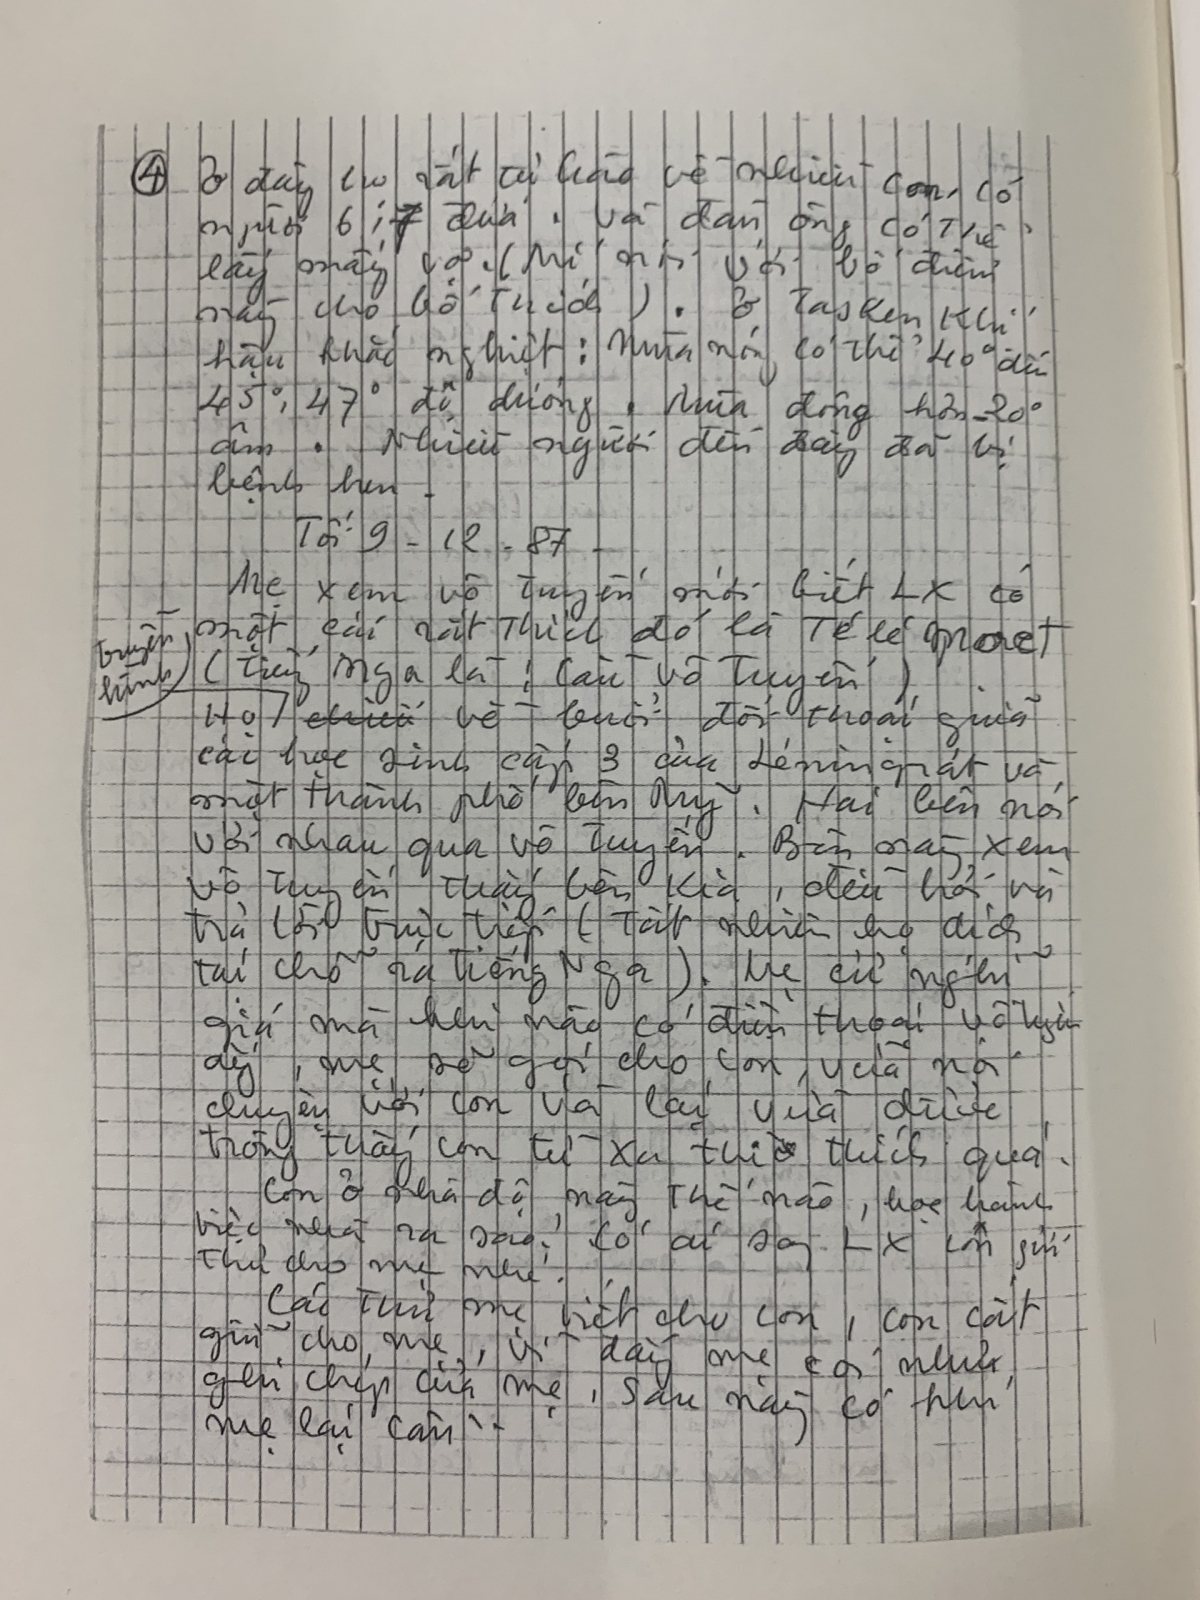 ④ Ở đây họ rất tự hào về nhiều con, có
người 6, 7 đứa. Và đàn ông có thể
lấy mấy vợ. (Mí nói với bố điều
này cho bố thích). Ở Tasken khí
hậu khắc nghiệt: Mùa nóng có thể 40° đến
45°, 47° độ dương. Mùa đông hơn -20°
âm. Nhiều người đến đây đã bị
bệnh hen.
Tối 9-12-87.
Mẹ xem vô tuyến mới biết LX có
một cái rất thích đó là Tê lê moct
(tiếng Nga là: Cầu vô tuyến)
truyền hình
Họ chiếu về buổi đối thoại giữa
các học sinh cấp 3 của Lêningrát và
một thành phố bên Mỹ. Hai bên nói
với nhau qua vô tuyến. Bên này xem
vô tuyến thấy bên kia, đều hỏi và
trả lời trực tiếp (Tất nhiên họ dịch
tại chỗ ra tiếng Nga). Mẹ cứ nghĩ
giá mà hôm nào có điện thoại vô tuyến
ấy, mẹ sẽ gọi cho con, vừa nói
chuyện với con và lại vừa được
trông thấy con từ xa thì thích quá.
Con ở nhà độ này thế nào, học hành
việc nhà ra sao? Có ai sang LX con gửi
thư cho mẹ nhé.
Các thư mẹ viết cho con, con cất
giữ cho mẹ, vì đấy mẹ coi như
ghi chép của mẹ, sau này có khi
mẹ lại cần..